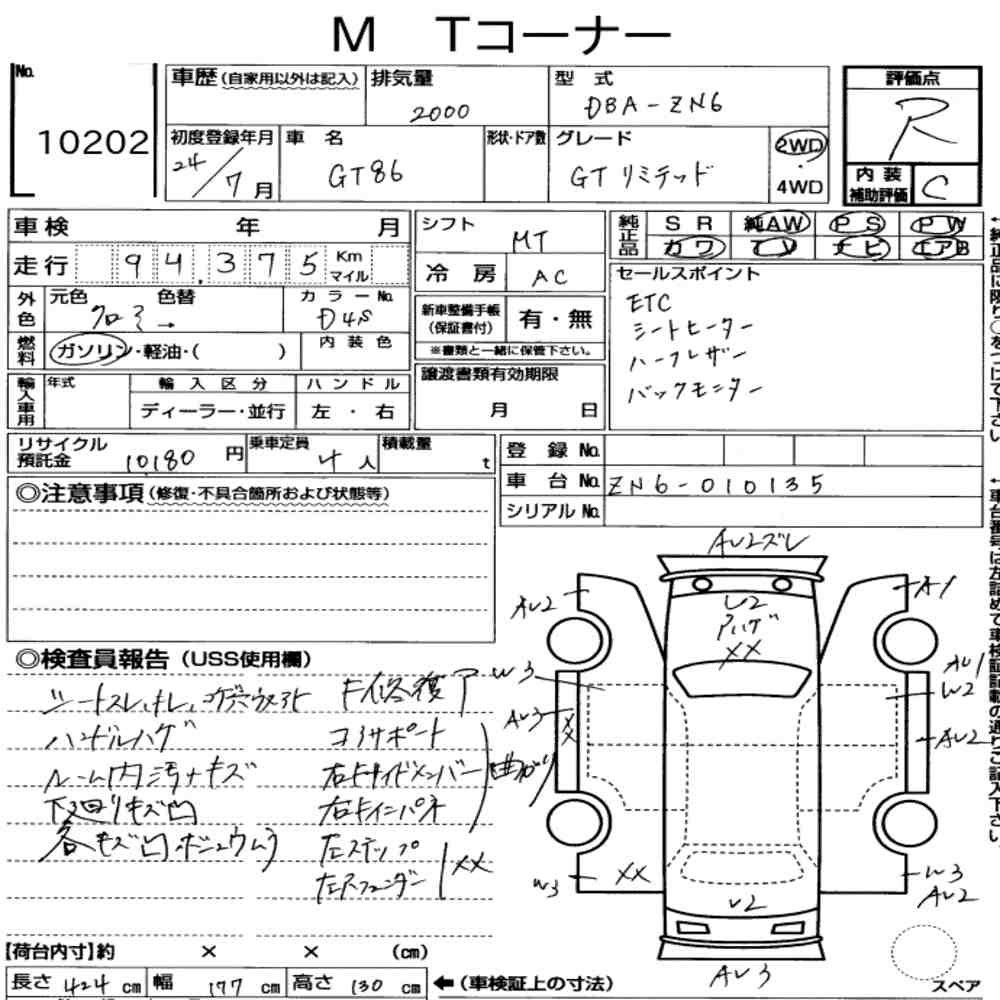 M Tコーナー
No.
10202
車歴(自家用以外は記入)
排気量
2000
型 式
DBA-ZN6
評価点
R
初度登録年月
24/7月
車 名
GT86
形状・ドア数
グレード
GTリミテッド
2WD
・
4WD
内 装
補助評価
C
車検 年 月
シフト
MT
純正品
SR 純AW PS PW
カワ TV ナビ エアB
走行 94,375 Km
マイル
冷 房
AC
セールスポイント
ETC
シートヒーター
ハーフレザー
バックモニター
外色
元色 色替
クロミ→
カラーNo.
D4S
新車整備手帳
(保証書付)
有・無
※書類と一緒に保管下さい。
燃料
ガソリン・軽油・( )
内 装 色
譲渡書類有効期限
月 日
輸入車用
年式
輸 入 区 分
ディーラー・並行
ハ ン ド ル
左 ・ 右
リサイクル
預託金
10180 円
乗車定員
4人
積載量
t
登 録 No.
車 台 No. ZN6-010135
シリアル No.
◎注意事項(修復・不具合箇所および状態等)
◎検査員報告(USS使用欄)
ハンドルハゲ
ルーム内汚レキズ
下廻りキズ凹
各キズ凹
F修復ア
コアサポート
右Fサイドメンバー
右Fインパネ
曲がり
左ステップ
左Rフェンダー
XX
AU2ズレ
U2
アハゲ
XX
AU2
A1
W3
AU1
W2
AU3
XX
AU2
W3
XX
U2
W3
AU2
AU3
【荷台内寸】約 × × (cm)
長さ 424 cm 幅 177 cm 高さ 130 cm ←(車検証上の寸法)
スペア
←純正品に限り○をつけて下さい。
←車台番号は左詰めで車検証記載の通りご記入下さい。